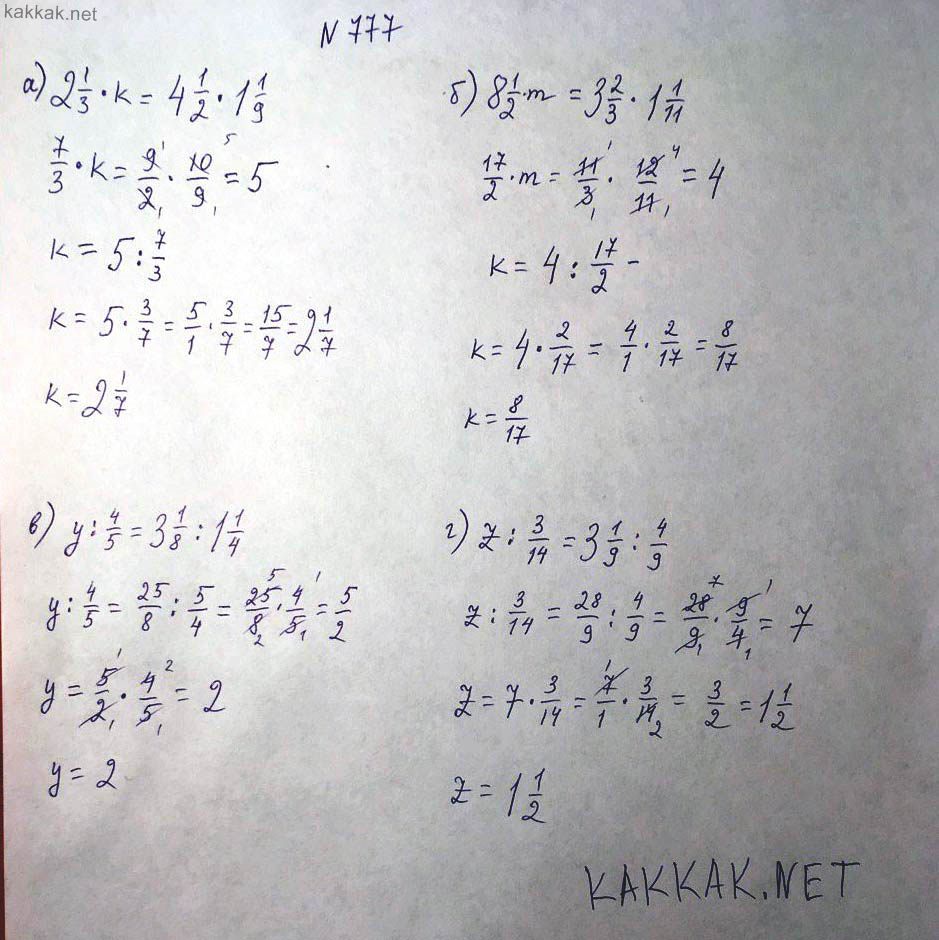 kakkak.net
N 777
а) 2 1/3 · k = 4 1/2 · 1 1/9
7/3 · k = 9/2 · 10/9 = 5
k = 5 : 7/3
k = 5 · 3/7 = 5/1 · 3/7 = 15/7 = 2 1/7
k = 2 1/7
б) 8 1/2 · m = 3 2/3 · 1 1/11
17/2 · m = 11/3 · 12/11 = 4
k = 4 : 17/2 -
k = 4 · 2/17 = 4/1 · 2/17 = 8/17
k = 8/17
в) y : 4/5 = 3 1/8 : 1 1/4
y : 4/5 = 25/8 : 5/4 = 25/8 · 4/5 = 5/2
y = 5/2 · 4/5 = 2
y = 2
г) z : 3/14 = 3 1/9 : 4/9
z : 3/14 = 28/9 : 4/9 = 28/9 · 9/4 = 7
z = 7 · 3/14 = 7/1 · 3/14 = 3/2 = 1 1/2
z = 1 1/2
KAKKAK.NET